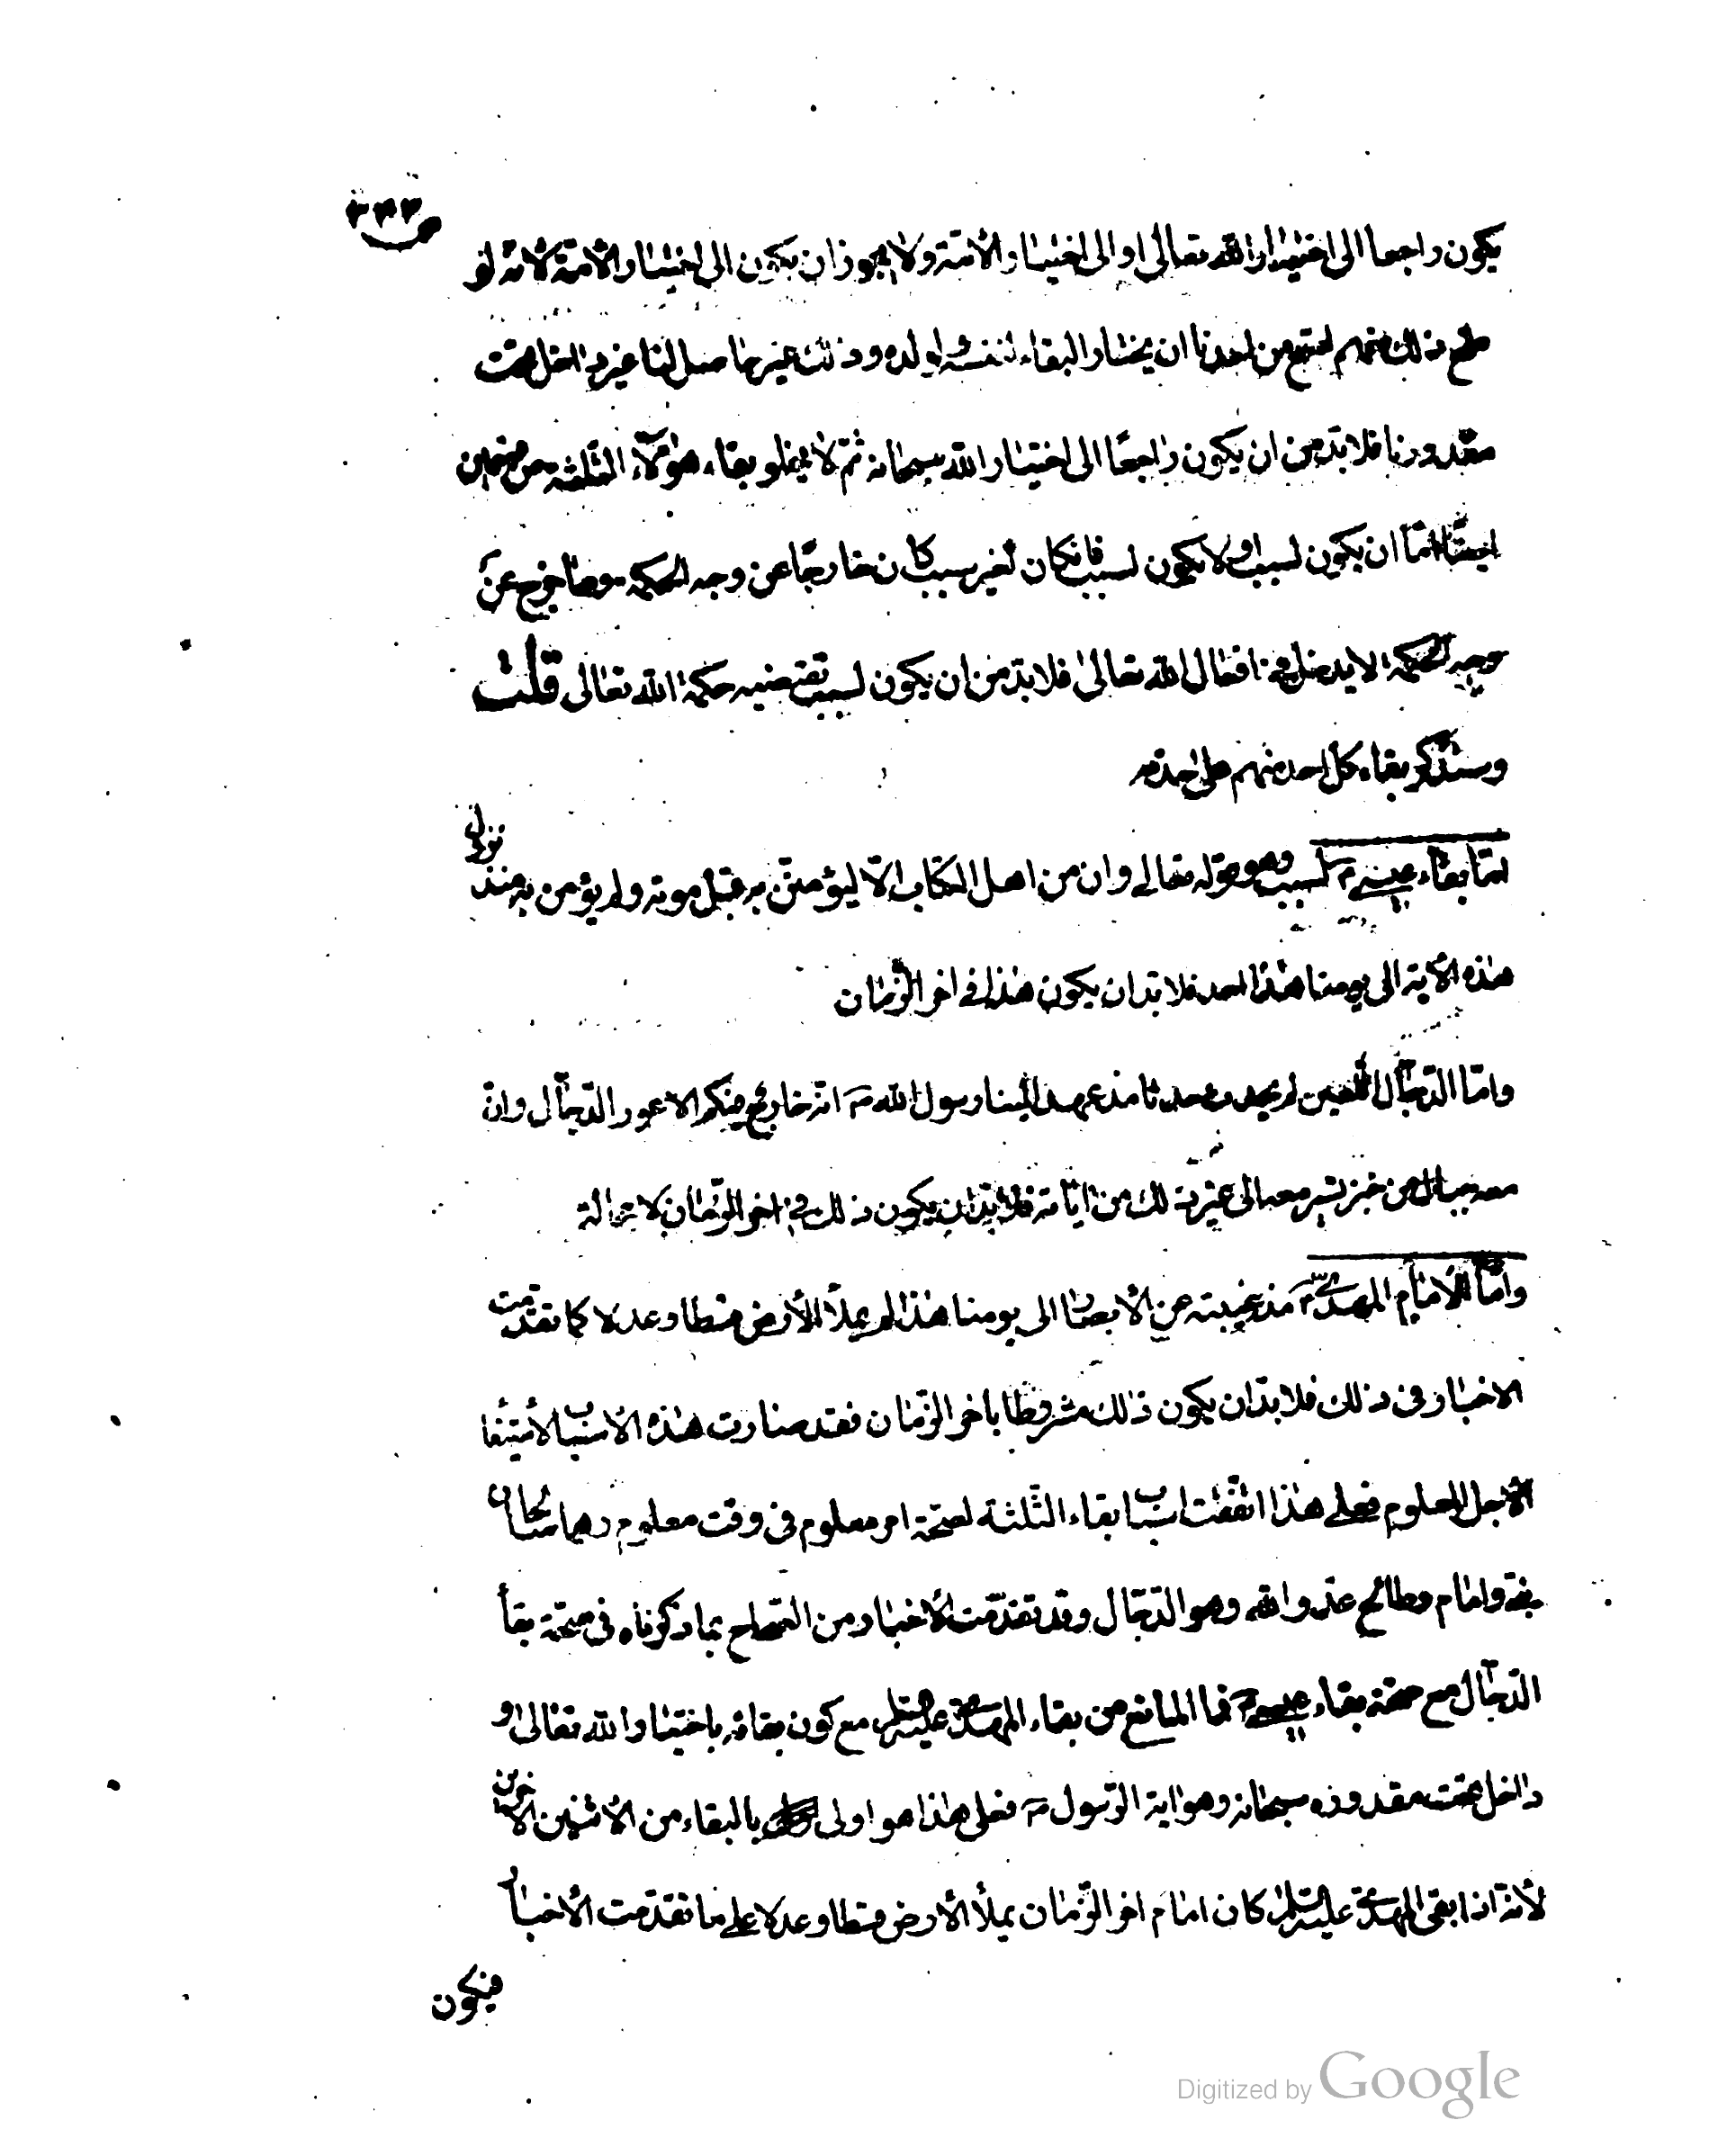 يكون راجعا الى اختيار الله تعالى او الى اختيار الأمة ولا يجوز ان يكون الى اختيار الأمة لأنه لو
صح ذلك منهم لصح من احدنا ان يختار البقاء لنفسه او لولده وذلك غير حاصل لنا غير داخل تحت
مقدورنا فلا بد من ان يكون راجعًا الى اختيار الله سبحانه ثم لا يخلو بقاء هؤلاء الثلثة من
ايضًا امّا ان يكون لسبب او لا يكون لسبب فان كان لغير سبب كان خارجًا عن وجه الحكمة وما خرج عن
وجه الحكمة لا يدخل في افعال الله تعالى فلا بد من ان يكون لسبب تقتضيه حكمة الله تعالى قلت
وسنذكر بقاء كل احد منهم على حدته
امّا بقاء عيسى ع لسبب وهو قوله تعالى وان من اهل الكتاب الّا ليؤمننّ به قبل موته ولم يؤمن به منذ نزول
هذه الآية الى يومنا هذا احد فلا بد ان يكون هذا في اخر الزمان
وامّا الدجّال اللعين لم يحدث حدثا مذ عهد الينا رسول الله ص انه خارج فيكم الاعور الدجّال وانّ
معه جبال من خبز تسير معه الى غير ذلك من اياته فلا بد ان يكون ذلك في اخر الزمان لا محالة
وامّا الامام المهدي ع مذ غيبته عن الأبصار الى يومنا هذا لم يملأ الأرض قسطا وعدلا كما تقدمت
الاخبار في ذلك فلا بد ان يكون ذلك مشروطا باخر الزمان فقد صارت هذه الأسباب لأستيفاء
الأجل المعلوم فعلى هذا اتفقت اسباب بقاء الثلثة لصحة امر معلوم في وقت معلوم وهما صالحان
نبي وامام وطالح عدو الله وهو الدجّال وقد تقدّمت الأخبار من الصحاح بما ذكرناه في صحة بقاء
الدجّال مع صحة بقاء عيسى ع فما المانع من بقاء المهدي عليه السلام مع كون بقائه باختيار الله تعالى و
داخل تحت مقدوره سبحانه وهو اية الرسول ص فعلى هذا هو اولى بالبقاء من الأثنين الأخرين
لأنه اذا بقى المهدي عليه السلام كان امام اخر الزمان يملأ الأرض قسطا وعدلا على ما تقدّمت الأخبار
فيكون
Digitized by Google